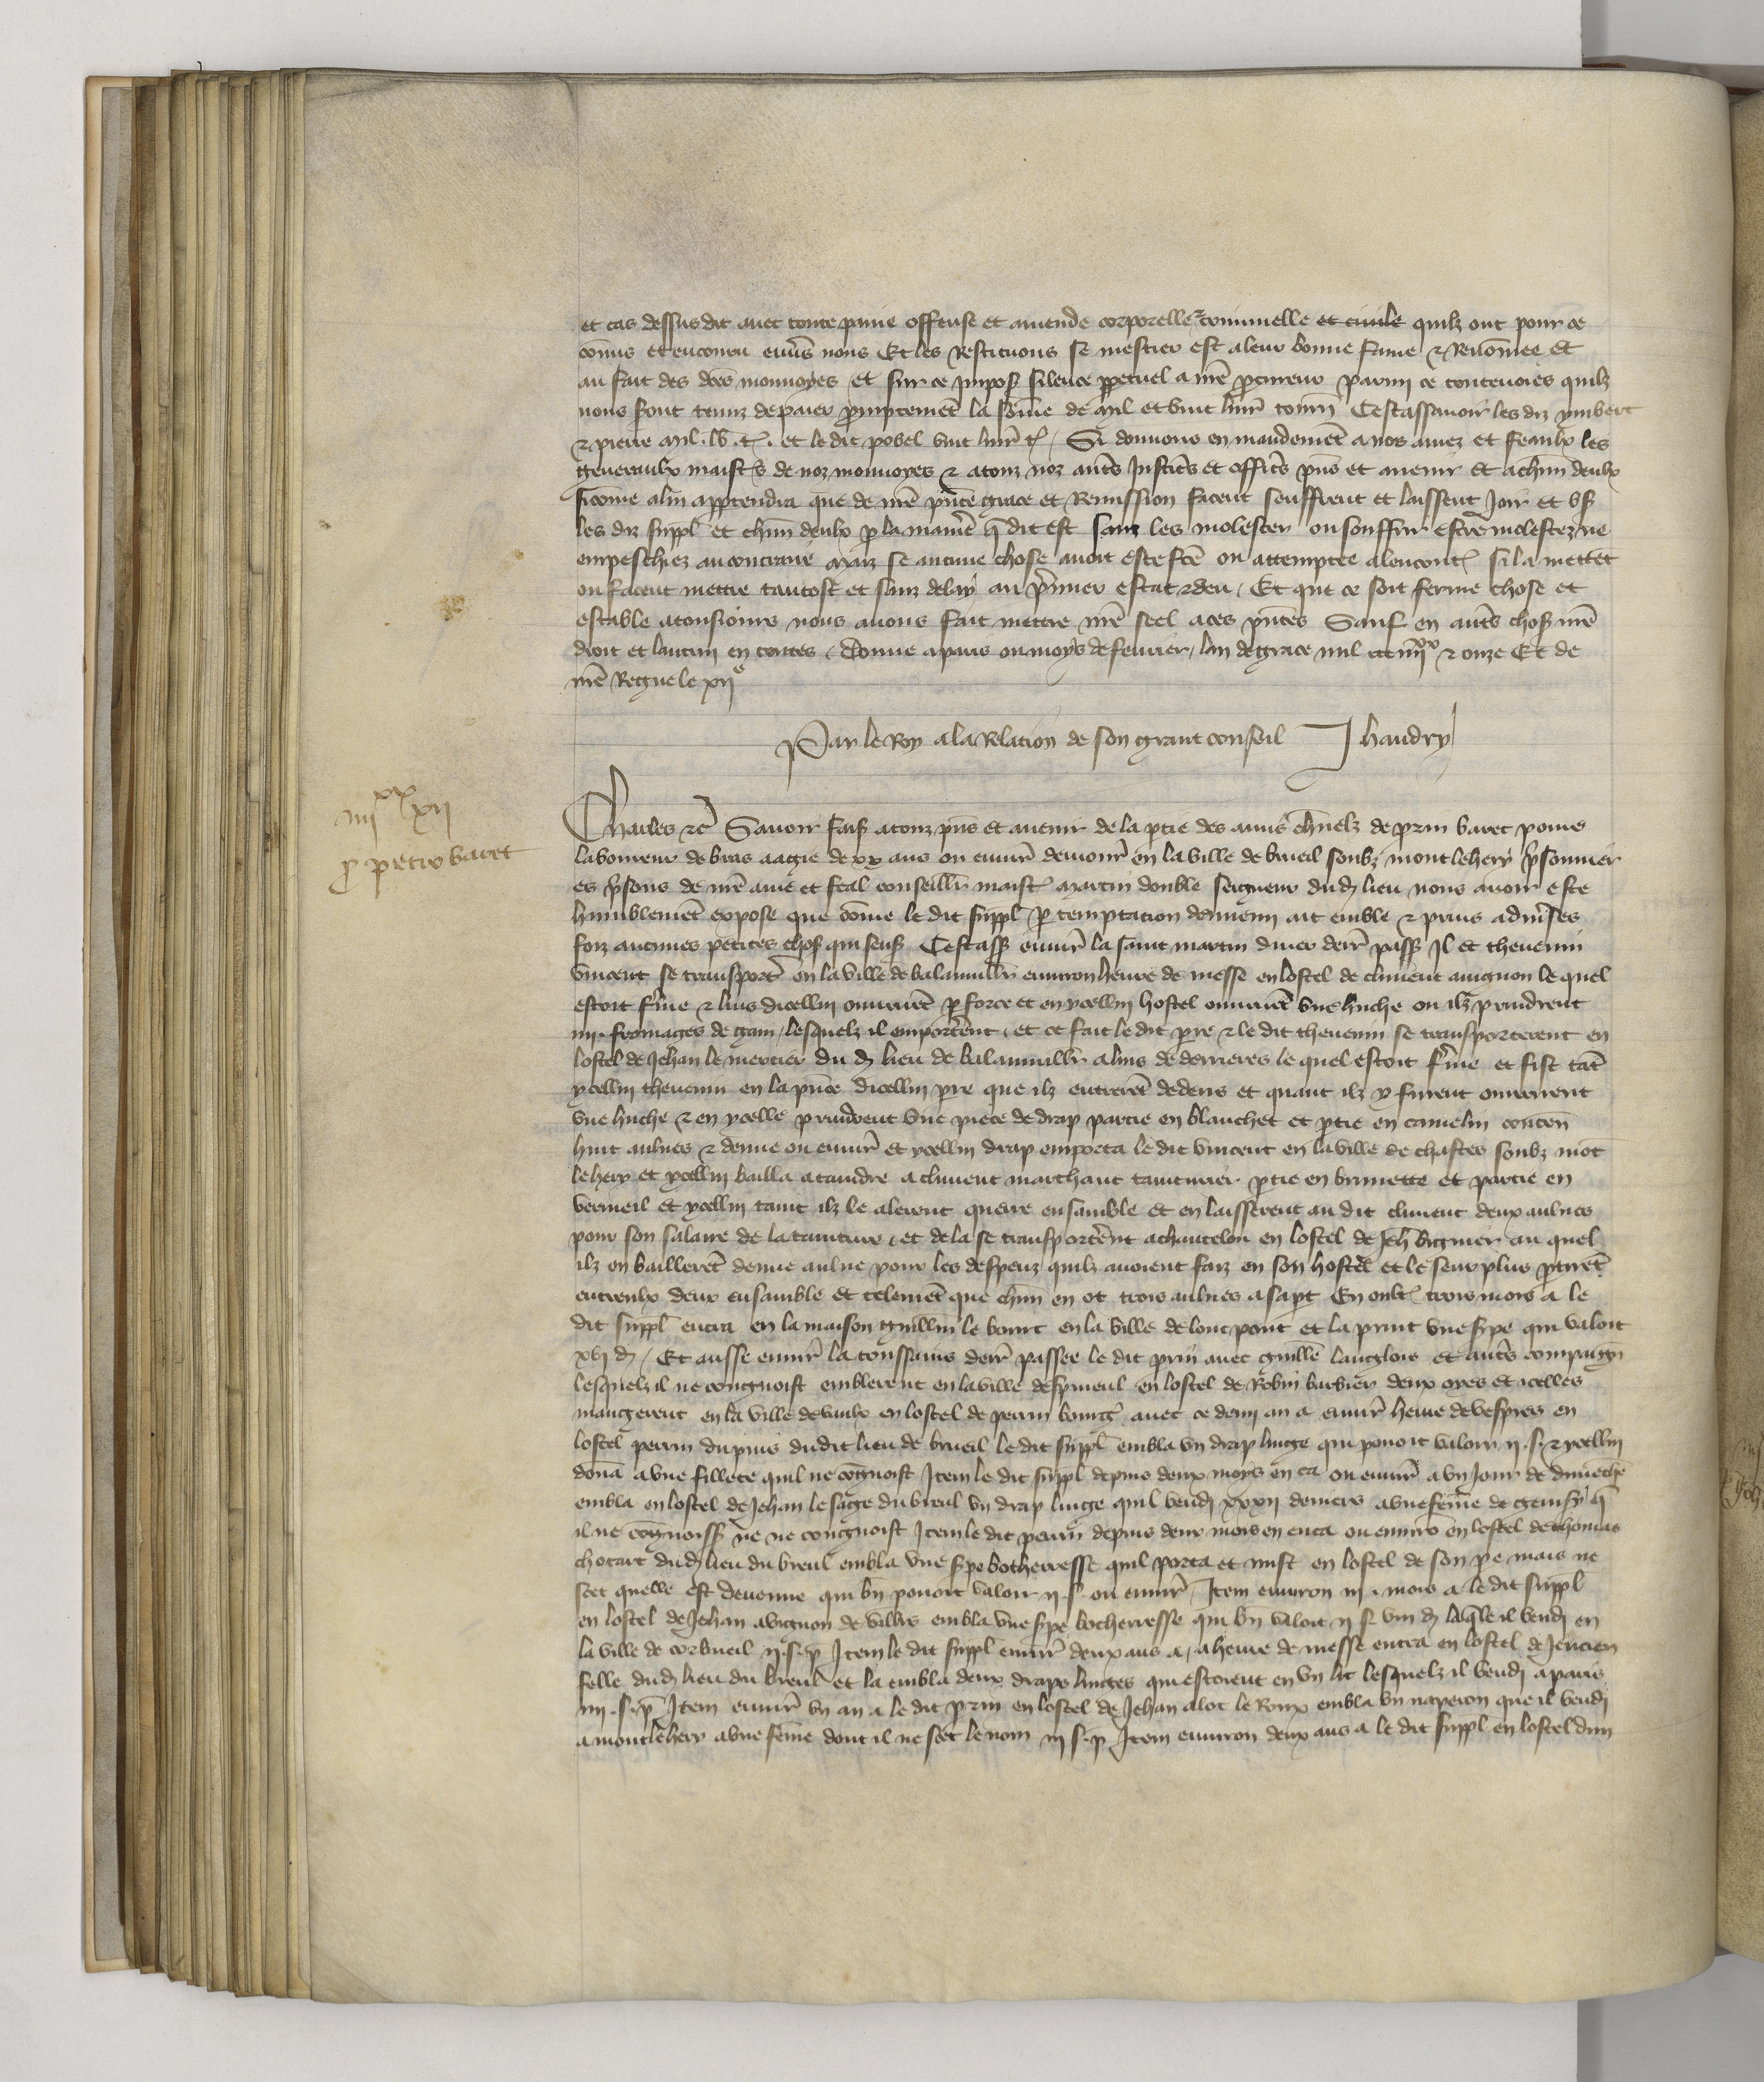 et cas dessusdit avec toute paine offense et amende corporelle & criminelle et civile quilz ont pour ce
comis et encouru envs nous Et les Restituons se mestier est a leur bonne fame & Renōmee Et
au fait des dces monnoyes et sur ce imposs silence ppetuel a nre pcureur parmi ce toutevoies quilz
nous sont tenuz de paier promptemēt la sōme de mil et vint livr tourn Cestassavoir les diz ymbert
& pierre mil . lb . t . et le dit pobel vint livr t / Si donnons en mandemēt a nos amez et feaulx les
generaulx maistrs de noz monnoyes & a touz noz autrs Justicrs et officrs pns et avenir et a chūn deulx
sicōme a luy appartendra que de nre pnte grace et Remission facent seuffrent et laissent Joir et us
les diz suppl et chūn deulx p la manie q dit est sanz les molester ou souffrir estre molestez ne
empeschiez au contraire maiz se aucune chose avoit este fce ou attemptee alencont si la mettēt
ou facent mettre tantost et sanz delay au pmier estat & deu / Et que ce soit ferme chose et
estable a tousiours nous avons fait mettre nre seel a ces pntes Sauf en autrs chos nre
droit et lautruy en toutes . Donne a paris ou moys de fevrier / lan de grace mil ccc iiii xx & onze Et de
nre Regne le xii e
Par le Roy a la Relacion de son grant conseil J haudry
iiii xx xii
p petro baret
Charles &c Savoir fais a touz pns et avenir de la ptie des amis chnelz de prin baret povre
laboureur de bras aagie de xx ans ou envir demour en la ville de brueil soubz montlehery psonnier
es psons de nre ame et feal conseillr maist martin double seigneur dud lieu nous avoir este
humblemēt expose que cōme le dit suppl p temptacion dennemy ait emble & prins a divses
foiz aucunes petites chos qui sens Cestass envir la saint martin diver derr pass Il et thevenin
vincent se transport en la ville de balainvillr environ heure de messe en lostel de climent avignon le quel
estoit fme & luis dicellui ouvrirēt p force et en ycellui hostel ouvrirēt une huche ou ilz prindrent
iiii . fromages de gain / lesquelz il emporterent . et ce fait le dit pre & le dit thevenin se transporterent en
lostel de Jehan le mercier du d lieu de balainvillr a luis de derrieres le quel estoit fme et fist tāt
ycellui thevenin en la pnce dicellui pre que ilz entrerēt dedens et quant ilz y furent ouvrirent
une huche & en ycelle prindrent une piece de drap partie en blanchet et ptie en camelin conten
huit aulnes & demie ou envir et ycellui drap emporta le dit vincent en la ville de chastres soubz mōt
lehery et ycellui bailla a taindre a climent marchant tainturier ptie en brunette et partie en
vermeil et ycellui taint ilz le alerent querre ensamble et en laisserent au dit climent deux aulnes
pour son salaire de la tainture . et de la se transporterent a chantelou en lostel de Jeh viguier au quel
ilz en baillerēt demie aulne pour les despens quilz avoient faiz en son hostel et le seurplus ptirēt
entreulx deux ensamble et telemēt que chūn en ot trois aulnes a sa pt En oult trois mois a le
dit suppl entra en la maison guillmi le bourc en la ville de lonc pont et la print une serpe qui valoit
xvi d / Et ausse envir la toussains derr passee le dit prin avec guille langlois et autrs compaign
lesquelz il ne congnoist emblerent en la ville despineul en lostel de Robin barbier deux oyes et icelles
mangerent en la ville de vaulx en lostel de perrin bourg avec ce demi an a envir heure de vespres en
lostel perrin dupuis dudit lieu de brueil le dit suppl embla un drap linge qui povoit valoir ii . s . & ycellui
dona a une fillete quil ne cognoist Item le dit suppl depuis deux moys en ca ou envir a un Jour de dimēche
embla en lostel de Jehan le sage du breul un drap linge quil vendi xxxii deniers a une feme de genissy q
il ne cognoiss ne ne congnoist Item le dit perrin depuis deux mois en enca ou environ en lostel de thomas
chotart dud lieu du breul embla une serpe botheresse quil porta et mist en lostel de son pe mais ne
scet quelle est devenue qui bn povoit valoir ii . s . ou envir . Item environ iii . mois a le dit suppl
en lostel de Jehan avignon de villrs embla une serpe bocherresse qui bn valoit ii s viii d laqle il vendi en
la ville de corbueil ii . s . p Item le dit suppl envir deux ans a / a heure de messe entra en lostel de Jencien
felle dud lieu du breul et la embla deux draps linges qui estoient en un lit lesquelz il vendi a paris
iiii . s . p Item envir un an a le dit prin en lostel de Jehan alot le Roux embla un naperon que il vendi
a montlehery a une feme dont il ne scet le nom iii s . p Item environ deux ans a le dit suppl en lostel dun